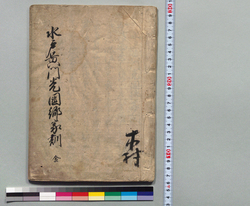 水戸黄門光圀卿家訓 全
木村